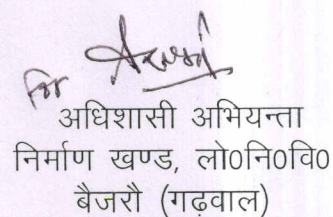 अधिशासी अभियन्ता
निर्माण खण्ड, लो0नि0वि0
बैजरौ (गढ़वाल)